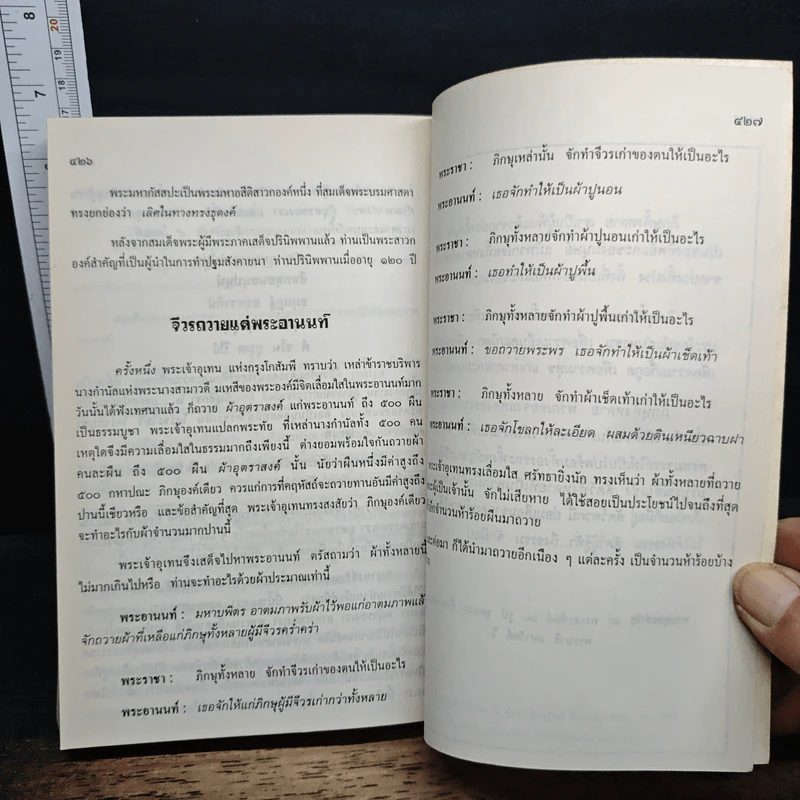 8
7
20
19
18
17
๔๒๖
พระมหากัสสปะเป็นพระมหาอสีติสาวกองค์หนึ่ง ที่สมเด็จพระบรมศาสดา
ทรงยกย่องว่า เลิศในทางทรงธุดงค์
หลังจากสมเด็จพระผู้มีพระภาคเสด็จปรินิพพานแล้ว ท่านเป็นพระสาวก
องค์สำคัญที่เป็นผู้นำในการทำปฐมสังคายนา ท่านปรินิพพานเมื่ออายุ ๑๒๐ ปี
จีวรถวายแด่พระอานนท์
ครั้งหนึ่ง พระเจ้าอุเทน แห่งกรุงโกสัมพี ทราบว่า เหล่าข้าราชบริพาร
นางกำนัลแห่งพระนางสามาวดี มเหสีของพระองค์มีจิตเลื่อมใสในพระอานนท์มาก
วันนั้นได้ฟังเทศนาแล้ว ก็ถวาย ผ้าอุตราสงค์ แก่พระอานนท์ ถึง ๕๐๐ ผืน
เป็นธรรมบูชา พระเจ้าอุเทนแปลกพระทัย ที่เหล่านางกำนัลทั้ง ๕๐๐ คน
เหตุใดจึงมีความเลื่อมใสในธรรมมากถึงเพียงนี้ ต่างยอมพร้อมใจกันถวายผ้า
คนละผืน ถึง ๕๐๐ ผืน ผ้าอุตราสงค์ นั้น นัยว่าผืนหนึ่งมีค่าสูงถึง
๕๐๐ กหาปณะ ภิกษุองค์เดียว ควรแก่การที่คฤหัสถ์จะถวายทานอันมีค่าสูงถึง
ปานนี้เชียวหรือ และข้อสำคัญที่สุด พระเจ้าอุเทนทรงสงสัยว่า ภิกษุองค์เดียว
จะทำอะไรกับผ้าจำนวนมากปานนี้
พระเจ้าอุเทนจึงเสด็จไปหาพระอานนท์ ตรัสถามว่า ผ้าทั้งหลายนี้
ไม่มากเกินไปหรือ ท่านจะทำอะไรด้วยผ้าประมาณเท่านี้
พระอานนท์ : มหาบพิตร อาตมภาพรับผ้าไว้พอแก่อาตมภาพแล้ว
จักถวายผ้าที่เหลือแก่ภิกษุทั้งหลายผู้มีจีวรคร่ำคร่า
พระราชา : ภิกษุทั้งหลาย จักทำจีวรเก่าของตนให้เป็นอะไร
พระอานนท์ : เธอจักให้แก่ภิกษุผู้มีจีวรเก่ากว่าทั้งหลาย
๔๒๗
พระราชา : ภิกษุเหล่านั้น จักทำจีวรเก่าของตนให้เป็นอะไร
พระอานนท์ : เธอจักทำให้เป็นผ้าปูนอน
พระราชา : ภิกษุทั้งหลายจักทำผ้าปูนอนเก่าให้เป็นอะไร
พระอานนท์ : เธอทำให้เป็นผ้าปูพื้น
พระราชา : ภิกษุทั้งหลายจักทำผ้าปูพื้นเก่าให้เป็นอะไร
พระอานนท์ : ขอถวายพระพร เธอจักทำให้เป็นผ้าเช็ดเท้า
พระราชา : ภิกษุทั้งหลาย จักทำผ้าเช็ดเท้าเก่าให้เป็นอะไร
พระอานนท์ : เธอจักโขลกให้ละเอียด ผสมด้วยดินเหนียวฉาบฝา
พระเจ้าอุเทนทรงเลื่อมใส ศรัทธายิ่งนัก ทรงเห็นว่า ผ้าทั้งหลายที่ถวาย
พระผู้เป็นเจ้านั้น จักไม่เสียหาย ได้ใช้สอยเป็นประโยชน์ไปจนถึงที่สุด
จำนวนห้าร้อยผืนมาถวาย
ต่อมา ก็ได้นำมาถวายอีกเนือง ๆ แต่ละครั้ง เป็นจำนวนห้าร้อยบ้าง